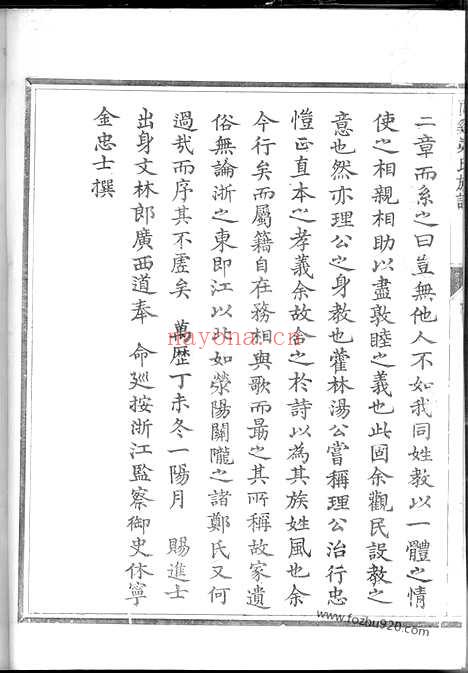 二章而系之曰豈無他人不如我同姓教以一體之情
使之相親相助以盡敦睦之義也此固余觀民設教之
意也然亦理公之身教也藿林湯公嘗稱理公治行忠
愷正直本之孝義余故舍之於詩以為其族姓風也余
今行矣而屬籍自在務相與歌而最之其所稱故家遺
俗無論浙之東即江以北如滎陽關隴之諸鄭氏又何
過哉而序其不虛矣 萬歷丁未冬一陽月 賜進士
出身文林郎廣西道奉 命廵按浙江監察御史休寧
金忠士撰
nayona.cn
www.fozhu920.com